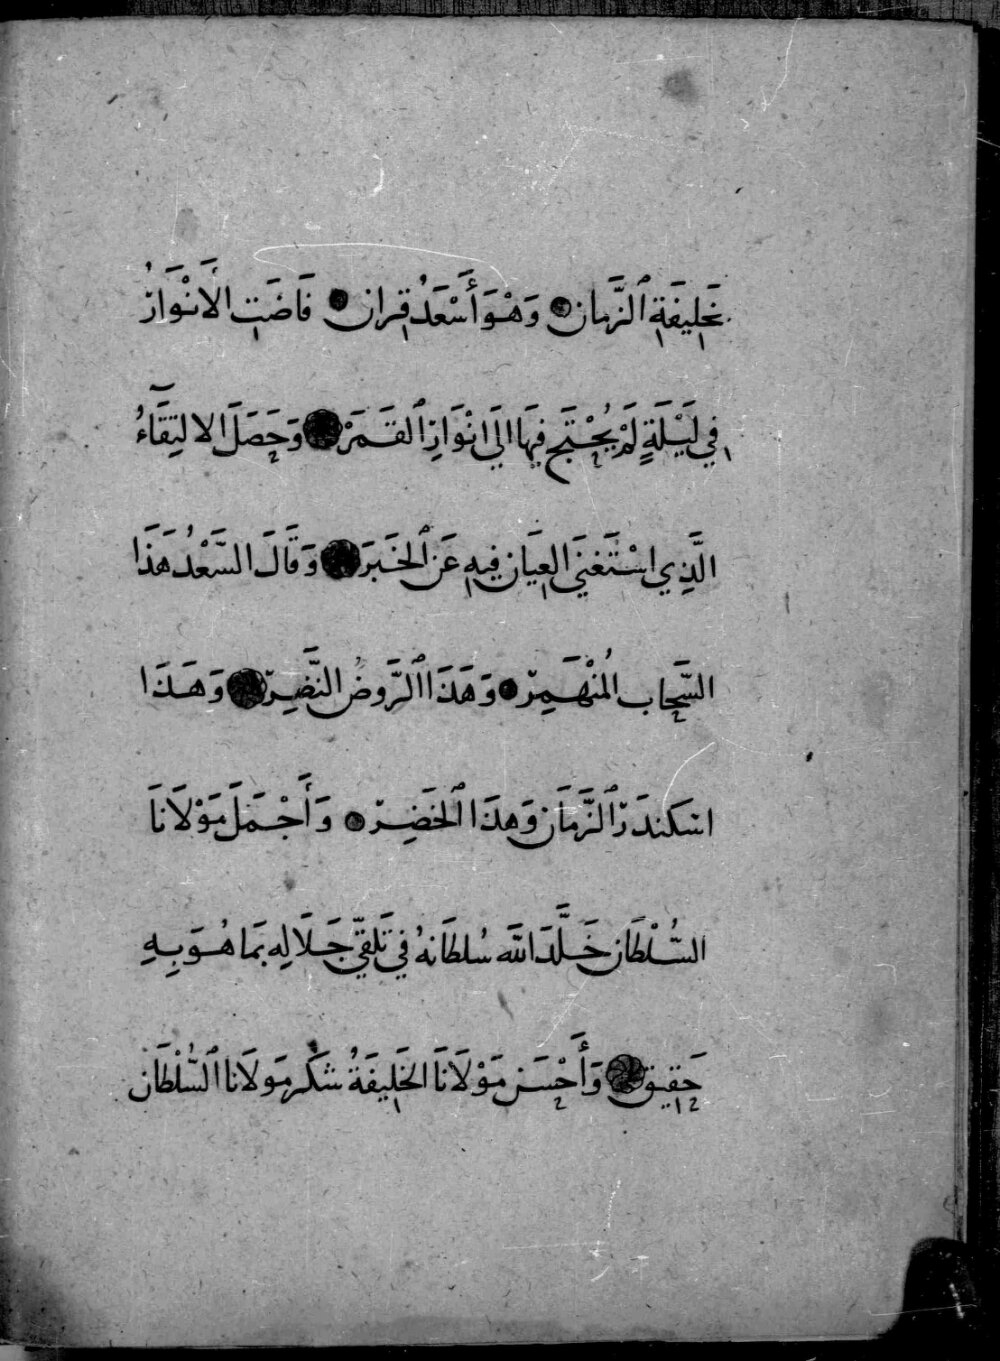 بخَلِيفَةِ ٱلزَّمان ● وَهْوَ أَسْعَدُ قِران ● فَاضَتِ الأَنْوَارُ
فِي لَيْلَةٍ لَمْ يُحْتَجْ فِيهَا الَى انْوَارِ ٱلقَمَرْ ● وَحَصَلَ الالتِقَاءُ
الَّذِي اسْتَغنَى العِيَان فِيهِ عَن ٱلخَبَرَ ● وَقَالَ السَّعْدُ هَذَا
السَّحاب المُنْهَمِرّ ● وَهَذَا ٱلرَّوضُ النَّضِرّ ● وَهَذَا
اسكندَرُ ٱلزَّمَان وَهذَا ٱلخَضِرّ ● وَأَجْمَلَ مَوْلَانَا
السُّلْطَان خَلَّدَ اللَّه سُلطَانهُ فِي تَلَقِّي جَلَالِهِ بمَا هُوَ بِهِ
حَقِيق ● وَأَحْسَن مَوْلَانَا الخَلِيفَةُ شكَر مَولَانا ٱلسُّلْطَان